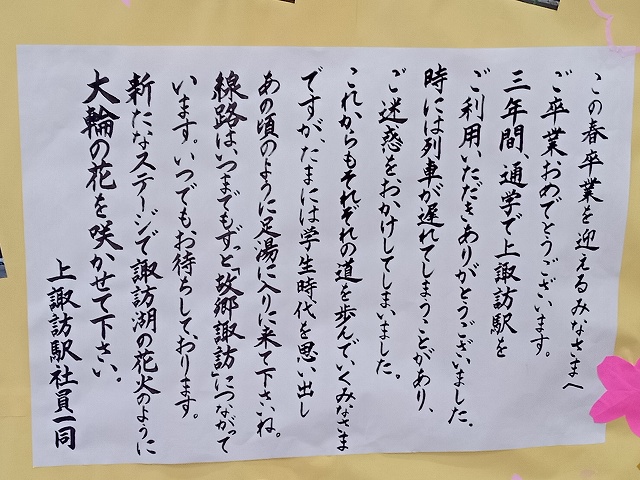 この春卒業を迎えるみなさまへ
ご卒業おめでとうございます。
三年間、通学で上諏訪駅を
ご利用いただきありがとうございました。
時には列車が遅れてしまうことがあり、
ご迷惑をおかけしてしまいました。
これからもそれぞれの道を歩んでいくみなさま
ですが、たまには学生時代を思い出し
あの頃のように足湯に入りに来て下さいね。
線路は、いつまでもずっと「故郷諏訪」につながって
います。いつでもお待ちしております。
新たなステージで諏訪湖の花火のように
大輪の花を咲かせて下さい。
上諏訪駅社員一同